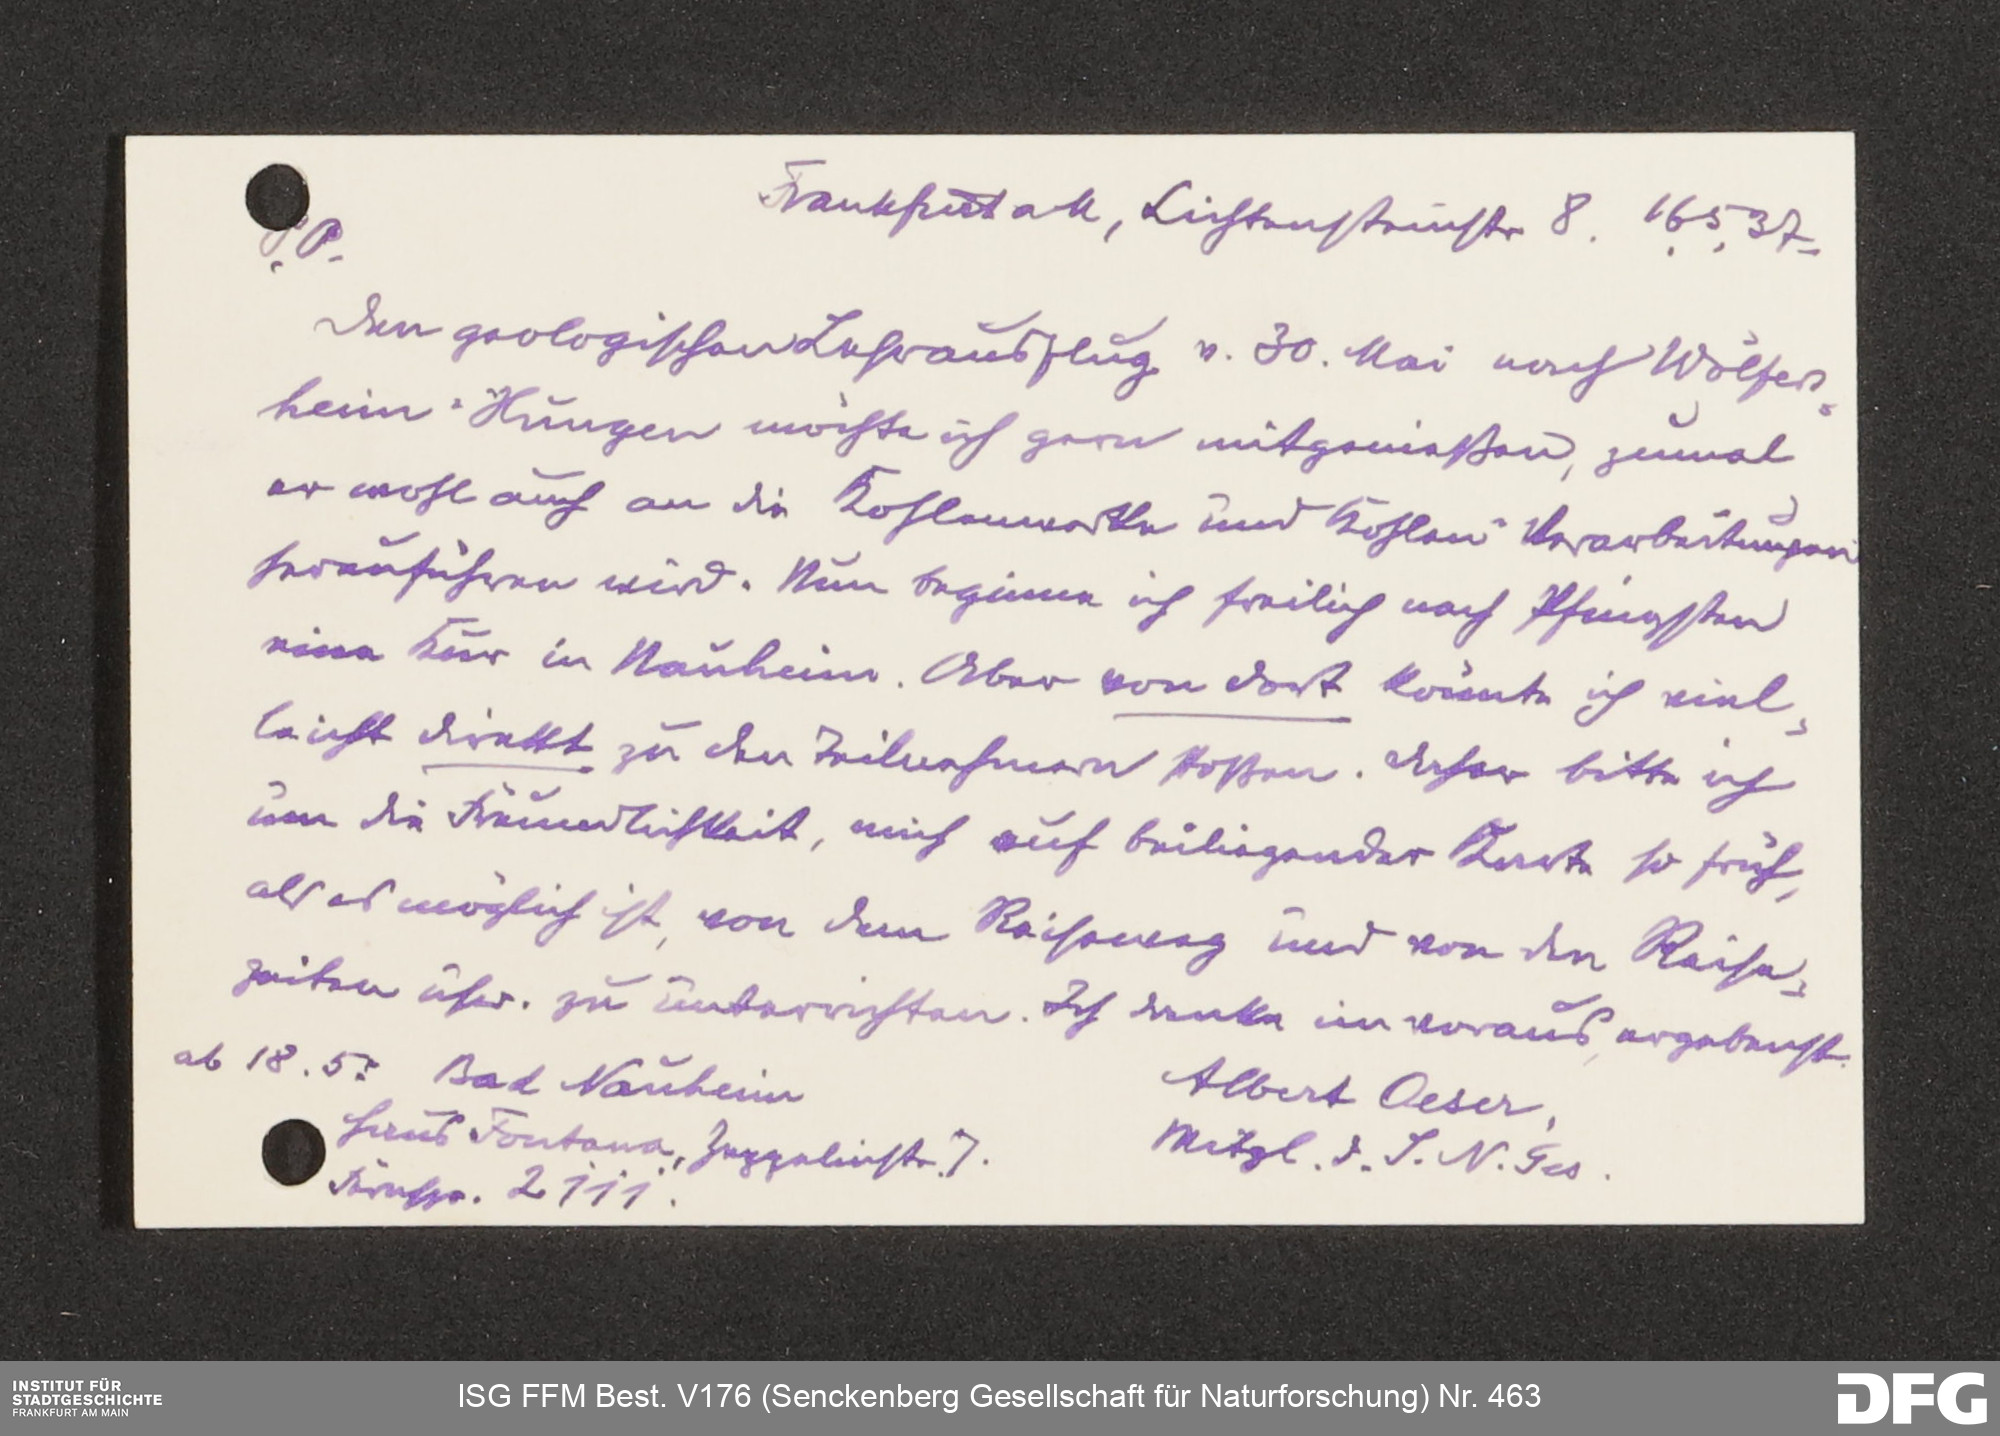 Frankfurt a M, Lichtensteinstr 8. 16.5.37.
P.P.
Den geologischen Lehrausflug v. 30. Mai nach Wölfers-
heim-Hungen möchte ich gern mitgenießen, zumal
er wohl auch an die Kohlenwerke und Kohlen-Verarbeitungen
heranführen wird. Nun beginne ich freilich nach Pfingsten
eine Kur in Nauheim. Aber von dort könnte ich viel-
leicht direkt zu den Teilnehmern stoßen. Daher bitte ich
um die Freundlichkeit, mich auf beiliegender Karte so früh,
als es möglich ist, von dem Reiseweg und von den Reise-
zeiten usw. zu unterrichten. Ich danke im voraus, ergebenst.
ab 18.5: Bad Nauheim
Albert Oeser,
Haus Fontana, Zeppelinstr. 7.
Mitgl. d. S. N. Ges.
Fernspr. 2111.
INSTITUT FÜR
STADTGESCHICHTE
FRANKFURT AM MAIN
ISG FFM Best. V176 (Senckenberg Gesellschaft für Naturforschung) Nr. 463
DFG